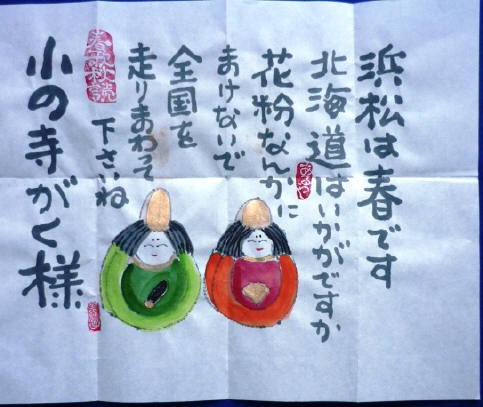 浜松は春です
北海道はいかがですか
花粉なんかに
まけないで
全国を
走りまわって
下さいね
小の寺がく様